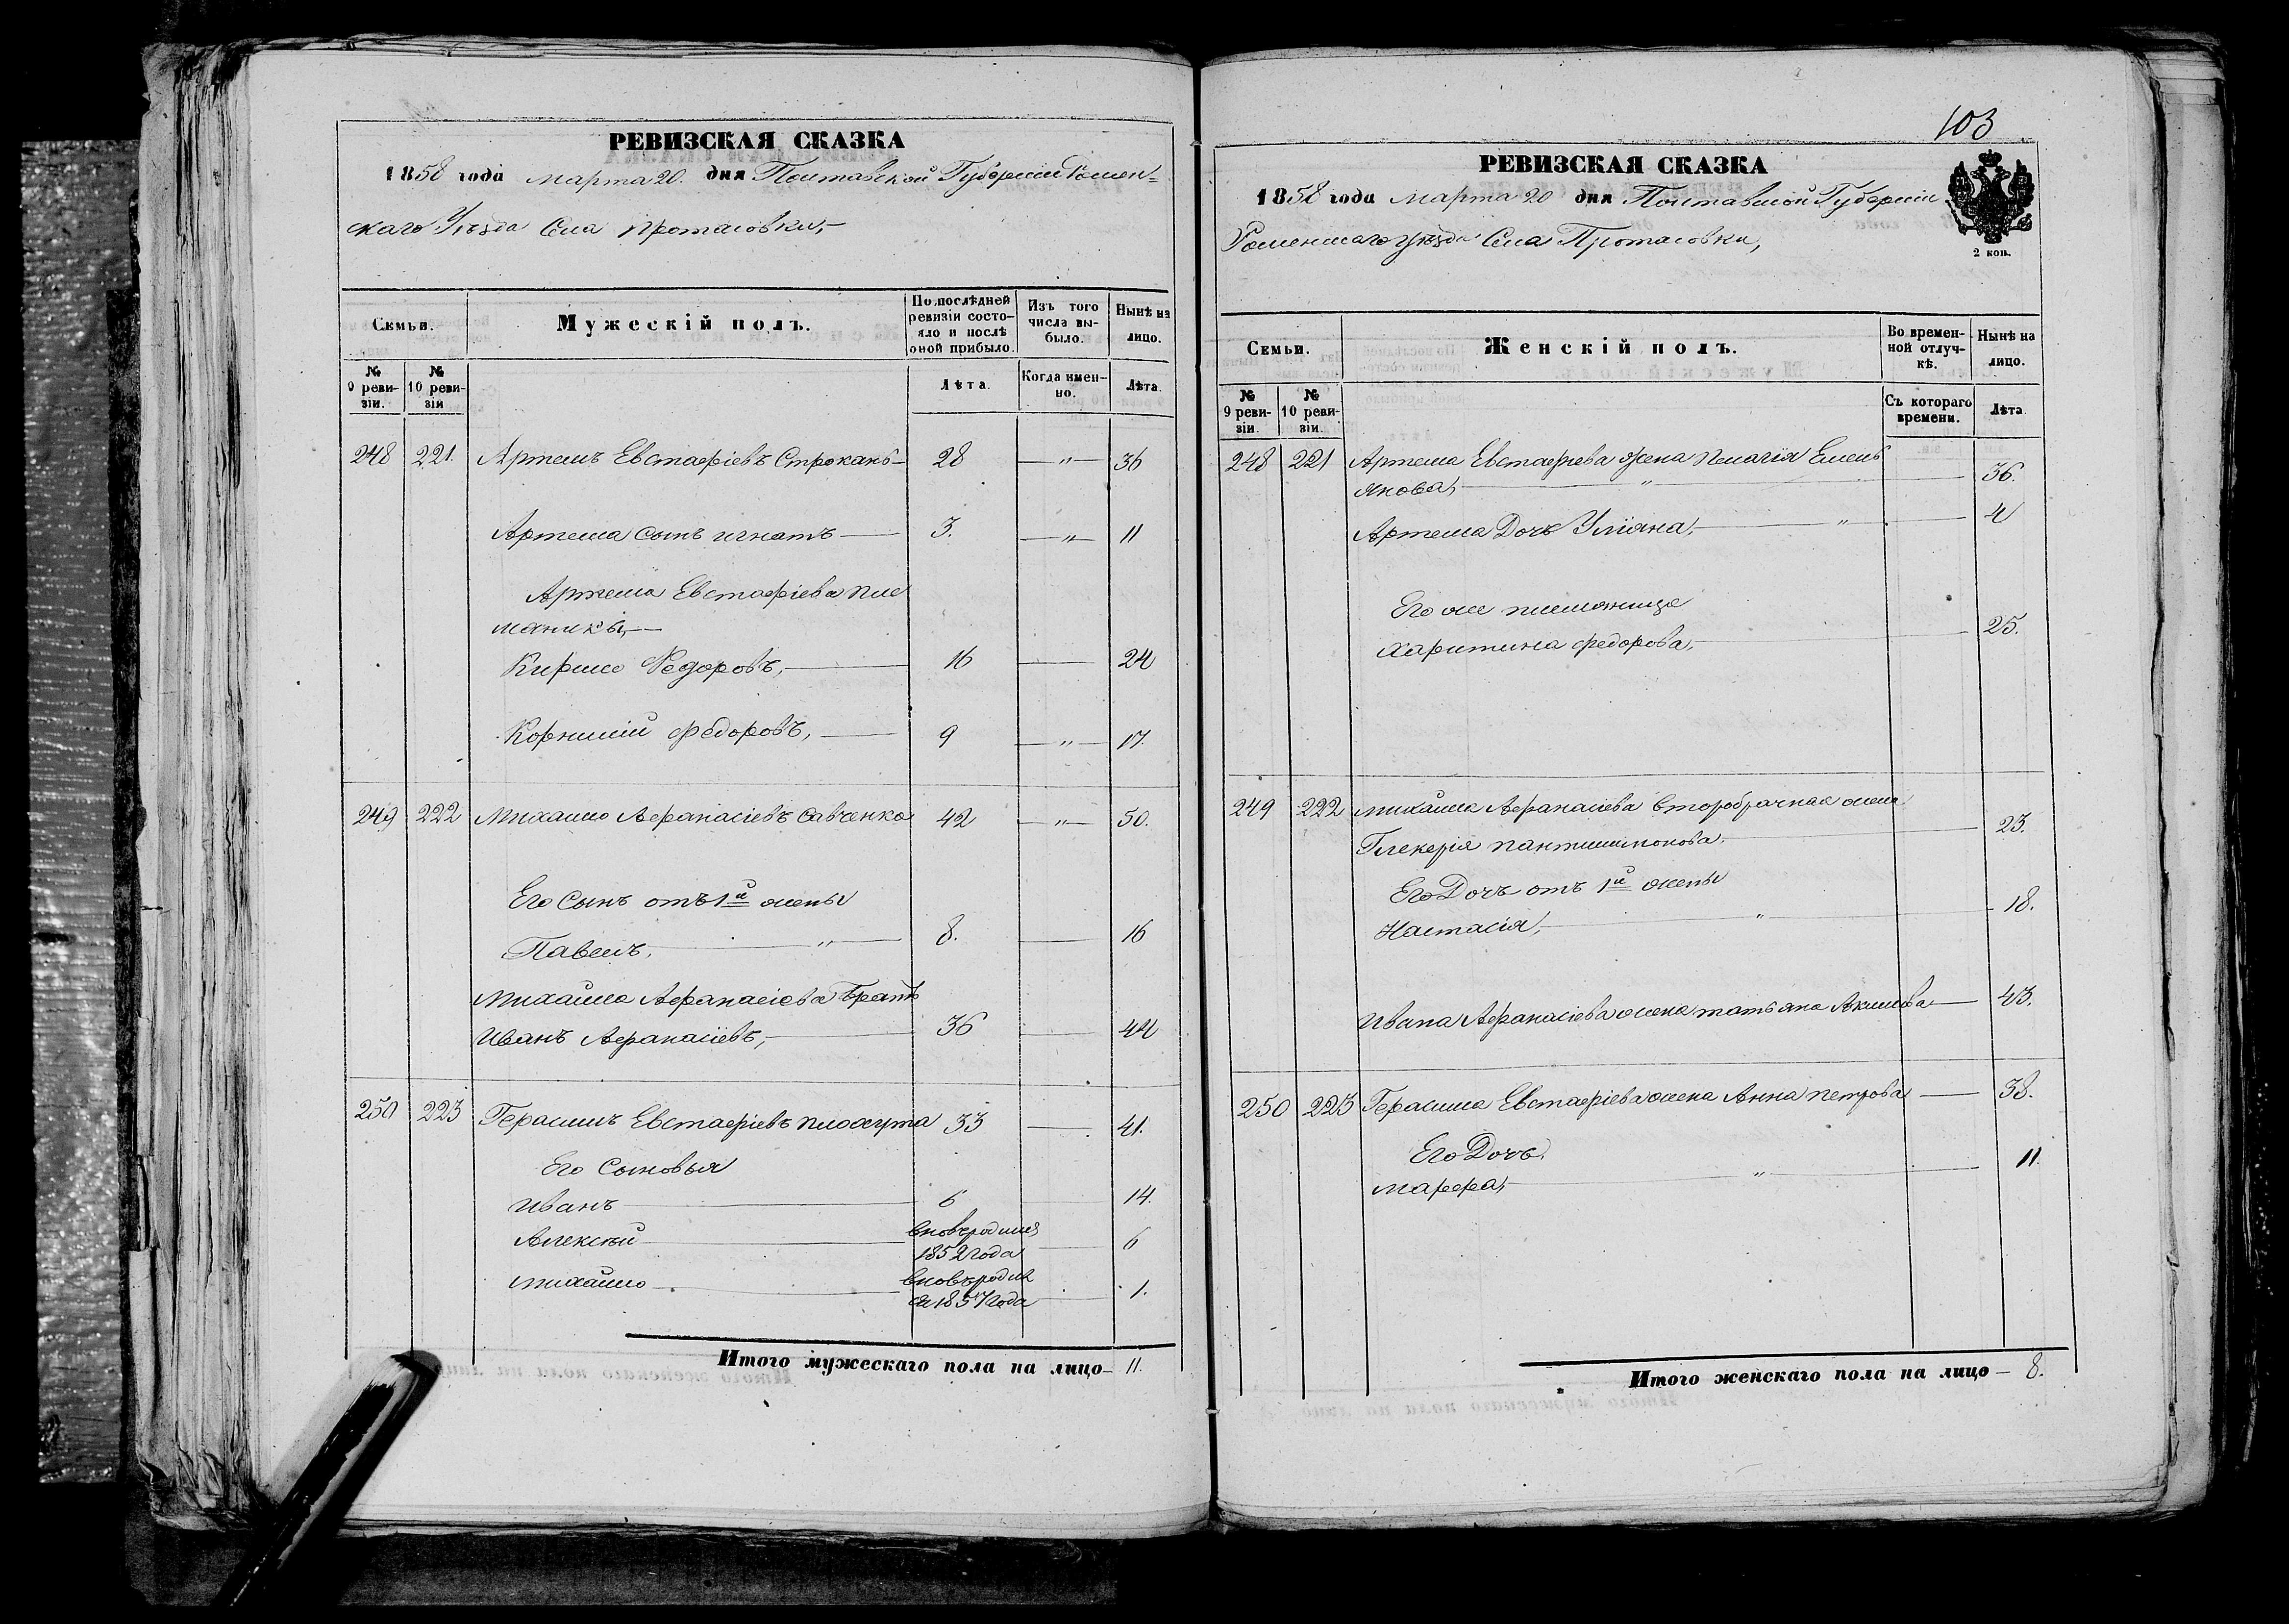 РЕВИЗСКАЯ СКАЗКА
1858 года марта 20. дня Полтавской Губерніи Ромен=
скаго Уѣзда Села Протасовки,—
Семьи.
Мужескій полъ.
По послѣдней ревизіи состояло и послѣ оной прибыло.
Изъ того числа выбыло.
Нынѣ на лицо.
№ 9 ревизіи.
№ 10 ревизіи
Лѣта.
Когда именно.
Лѣта.
248 221. Артемъ Евстафіевъ Строкань 28 — " — 36
Артема сынъ игнатъ 3. — " — 11
Артема Евстафіева пле
маники,—
Кирило Федоровъ, 16 — 24
Корнилій Федоровъ, 9 — " — 17.
249 222 Михайло Афанасіевъ Савченко 42 — " — 50.
Его Сынъ отъ 1й жены
Павелъ, " 8. — 16
Михайла Афанасіева Братъ
Иванъ Афанасіевъ, 36 — 44
250 223 Герасимъ Евстафіевъ 33 — 41.
Его Сыновья
Иванъ 6 14.
Алексѣй вновьродился
1852 года 6
михайло вновьродил
ся 1857 года 1.
Итого мужескаго пола на лицо— 11.
103
РЕВИЗСКАЯ СКАЗКА
1858 года Марта 20 дня Полтавской Губерніи
Роменскаго уѣзда Села Протасовки,
2 коп.
Семьи.
Женскій полъ.
Во временной отлучкѣ.
Нынѣ на лицо.
№ 9 ревизіи.
№ 10 ревизіи.
Съ котораго времени.
Лѣта.
248 221 Артема Евстафіева жена Пелагія Емель
янова, " 36.
Артема Дочь Уліяна, " 4
Его же племянница
Харитина федорова, 25.
249 222 михайла Афанасіева второбрачная жена
Гликерія пантилимонова. 23.
Его Дочь отъ 1й жены
Настасія, " 18.
Ивана Афанасіева жена татьяна Акимова — 43.
250 223 Герасима Евстафіева жена Анна петрова — 38.
Его Дочь
марфа, " 11.
Итого женскаго пола на лицо — 8.